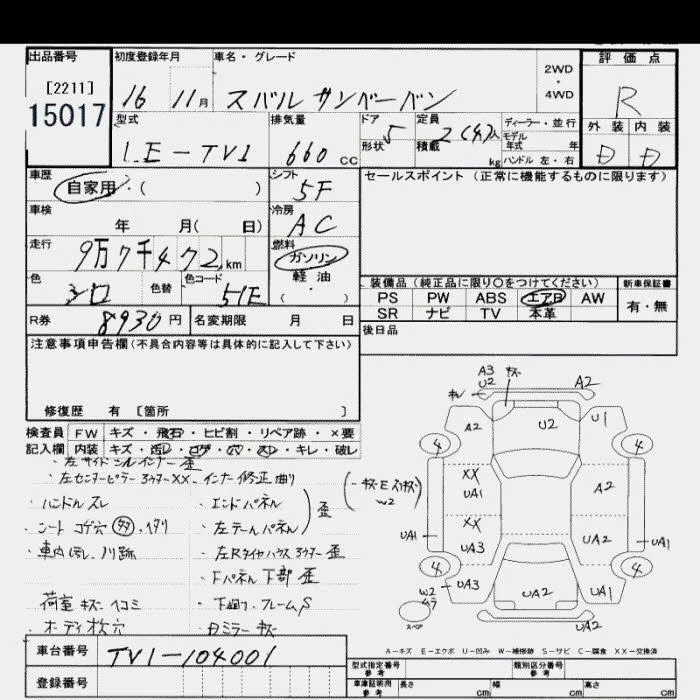 出品番号 初度登録年月 車名・グレード 評価点
[2211]
15017
16 11月 スバル サンバーバン
2WD
・
4WD
R
型式 排気量 ドア 定員 ディーラー・並行
形状 積載 モデル
年式 年
kg ハンドル 左・右
LE-TV1 660 CC 5 2(4)人
外装 内装
D D
車歴 シフト セールスポイント (正常に機能するものに限ります)
自家用・( ) 5F
車検 冷房
年 月( 日) AC
走行 燃料
9万7千472km ガソリン
軽油
・
( )
色 色替 色コード
シロ 51E
装備品 (純正品に限り〇をつけてください) 新車保証書
PS PW ABS エアB AW 有・無
SR ナビ TV 本革
R券 8930円 名変期限 月 日 後日品
注意事項申告欄(不具合内容等は具体的に記入して下さい)
修復歴 有 [箇所 ]
検査員 FW キズ・飛石・ヒビ割・リペア跡・×要
記入欄 内装 キズ・汚レ・コゲ・穴・スレ・キレ・破レ
・左サイドシルインナー歪
・左センターピラーアウターXX、インナー修正曲り
・ハンドルスレ ・エンドパネル
・シート コゲ穴 ・左テールパネル) 歪
・車内汚レ、ノリ跡 ・左Rタイヤハウスアウター歪
・Fパネル下部 歪
荷室 キズ ヘコミ ・下廻り、フレームS
・オーディオ枕穴 ・Dミラー キズ
A3
U2 キズ A2
キレ
A2 U2 U1
4 4
XX
UA1 A2
W2
XX
UA1 UA3 UA2 UA1
4 4
W2 UA3 UA2 UA1
スペア UA2
A-キズ E-エクボ U-凹み W-補修跡 S-サビ C-腐食 XX-交換済
車台番号 TV1-104001
型式指定番号 参考 類別区分番号 参考
登録番号
車庫証明用 参考 長さ cm 幅 cm 高さ cm